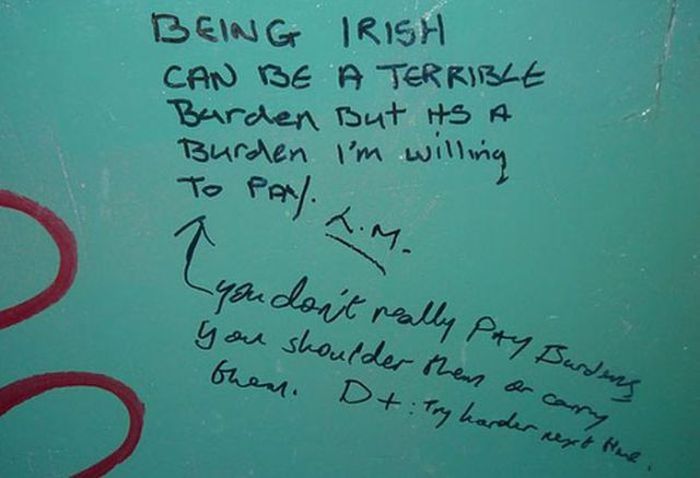 BEING IRISH
CAN BE A TERRIBLE
Burden But its A
Burden I'm willing
To PAY.
L.M.
you don't really PAY Burdens
you shoulder them or carry
them. D+: Try harder next time.